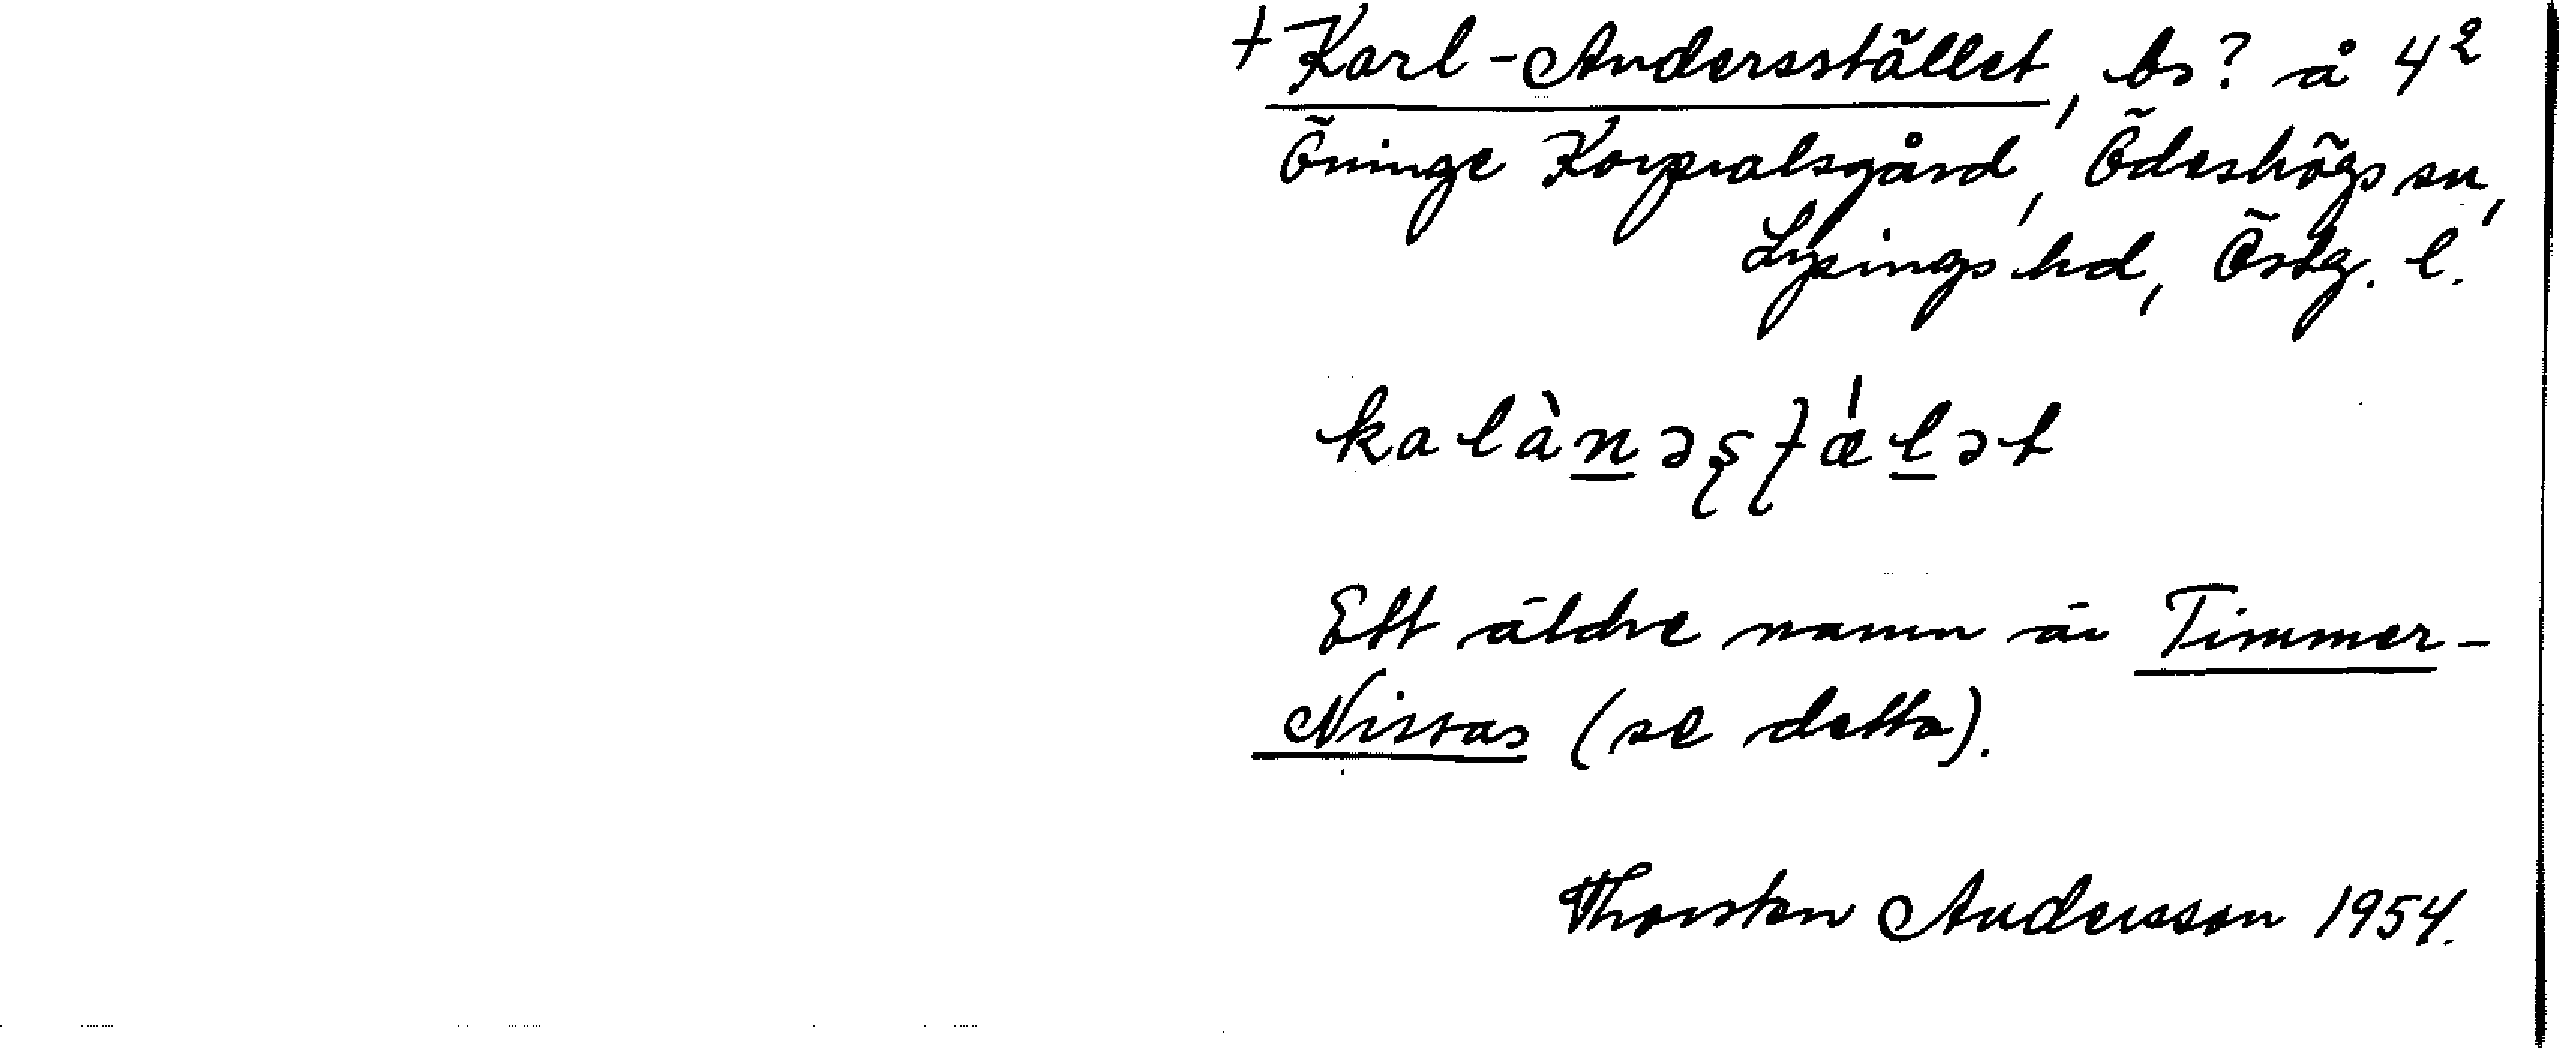 † Karl-Andersstället, bs? å 4²
Öninge Korpralsgård, Ödeshögs sn,
Lysings hd, Östg. l.
kalànəʂʈǽlət
Ett äldre namn är Timmer-
Nissas (se detta).
Thorsten Andersson 1954.